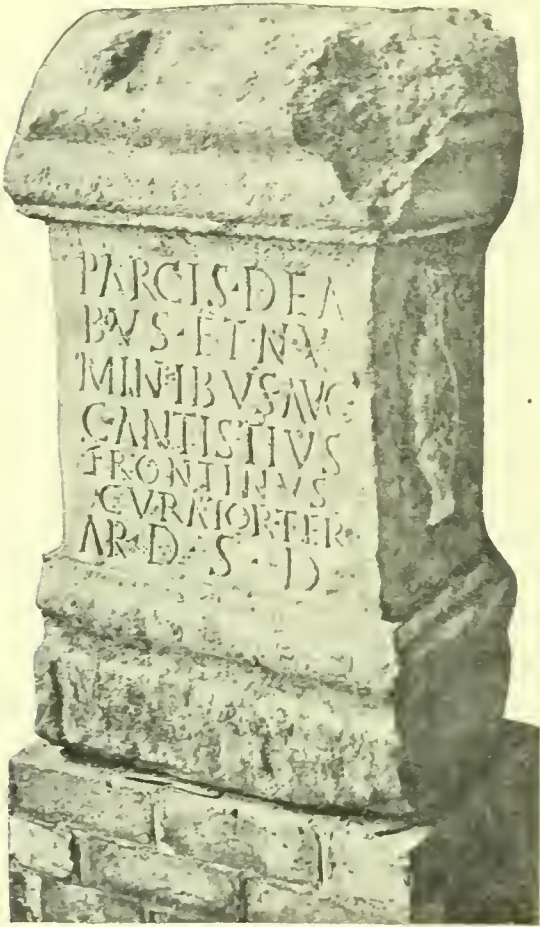 PARCIS·DEA
BVS·ET·NV
MINIBVS·AVG
C·ANTISTIVS
FRONTINVS
CVRATOR·TER·
AR·D·S·D